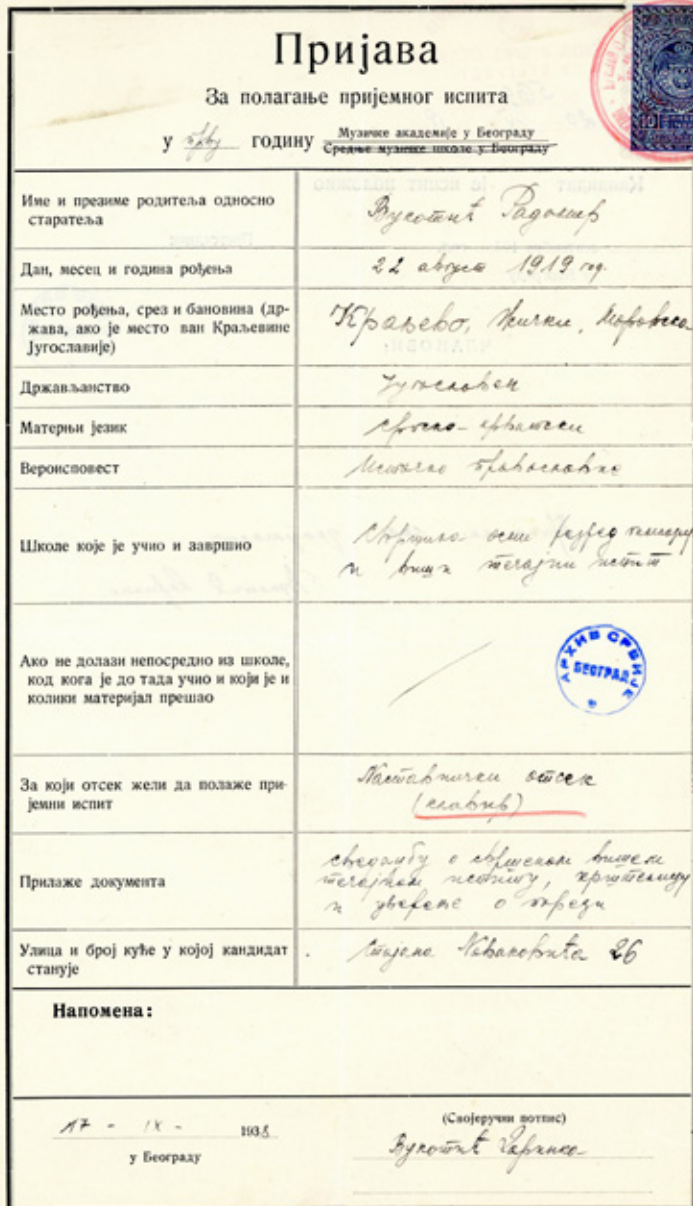 Пријава
За полагање пријемног испита
у прву годину Музичке академије у Београду
Средње музичке школе у Београду
Име и презиме родитеља односно
старатеља
Вукотић Радомир
Дан, месец и година рођења
22 август 1919 год.
Место рођења, срез и бановина (др-
жава, ако је место ван Краљевине
Југославије)
Краљево, Жички, Моравска
Држављанство
Југословен
Матерњи језик
српско-хрватски
Вероисповест
Источно православна
Школе које је учио и завршио
Свршила осми разред
и виши течајни испит
Ако не долази непосредно из школе,
код кога је до тада учио и који је и
колики материјал прешао
АРХИВ СРБИЈЕ
БЕОГРАД
За који отсек жели да полаже при-
јемни испит
Наставнички отсек
(клавир)
Прилаже документа
сведоџбу о свршеном вишем
течајном испиту, крштеницу
и уверење о
Улица и број куће у којој кандидат
станује
Стојана Новаковића 26
Напомена:
17 - IX - 1938
у Београду
(Својеручни потпис)
Вукотић